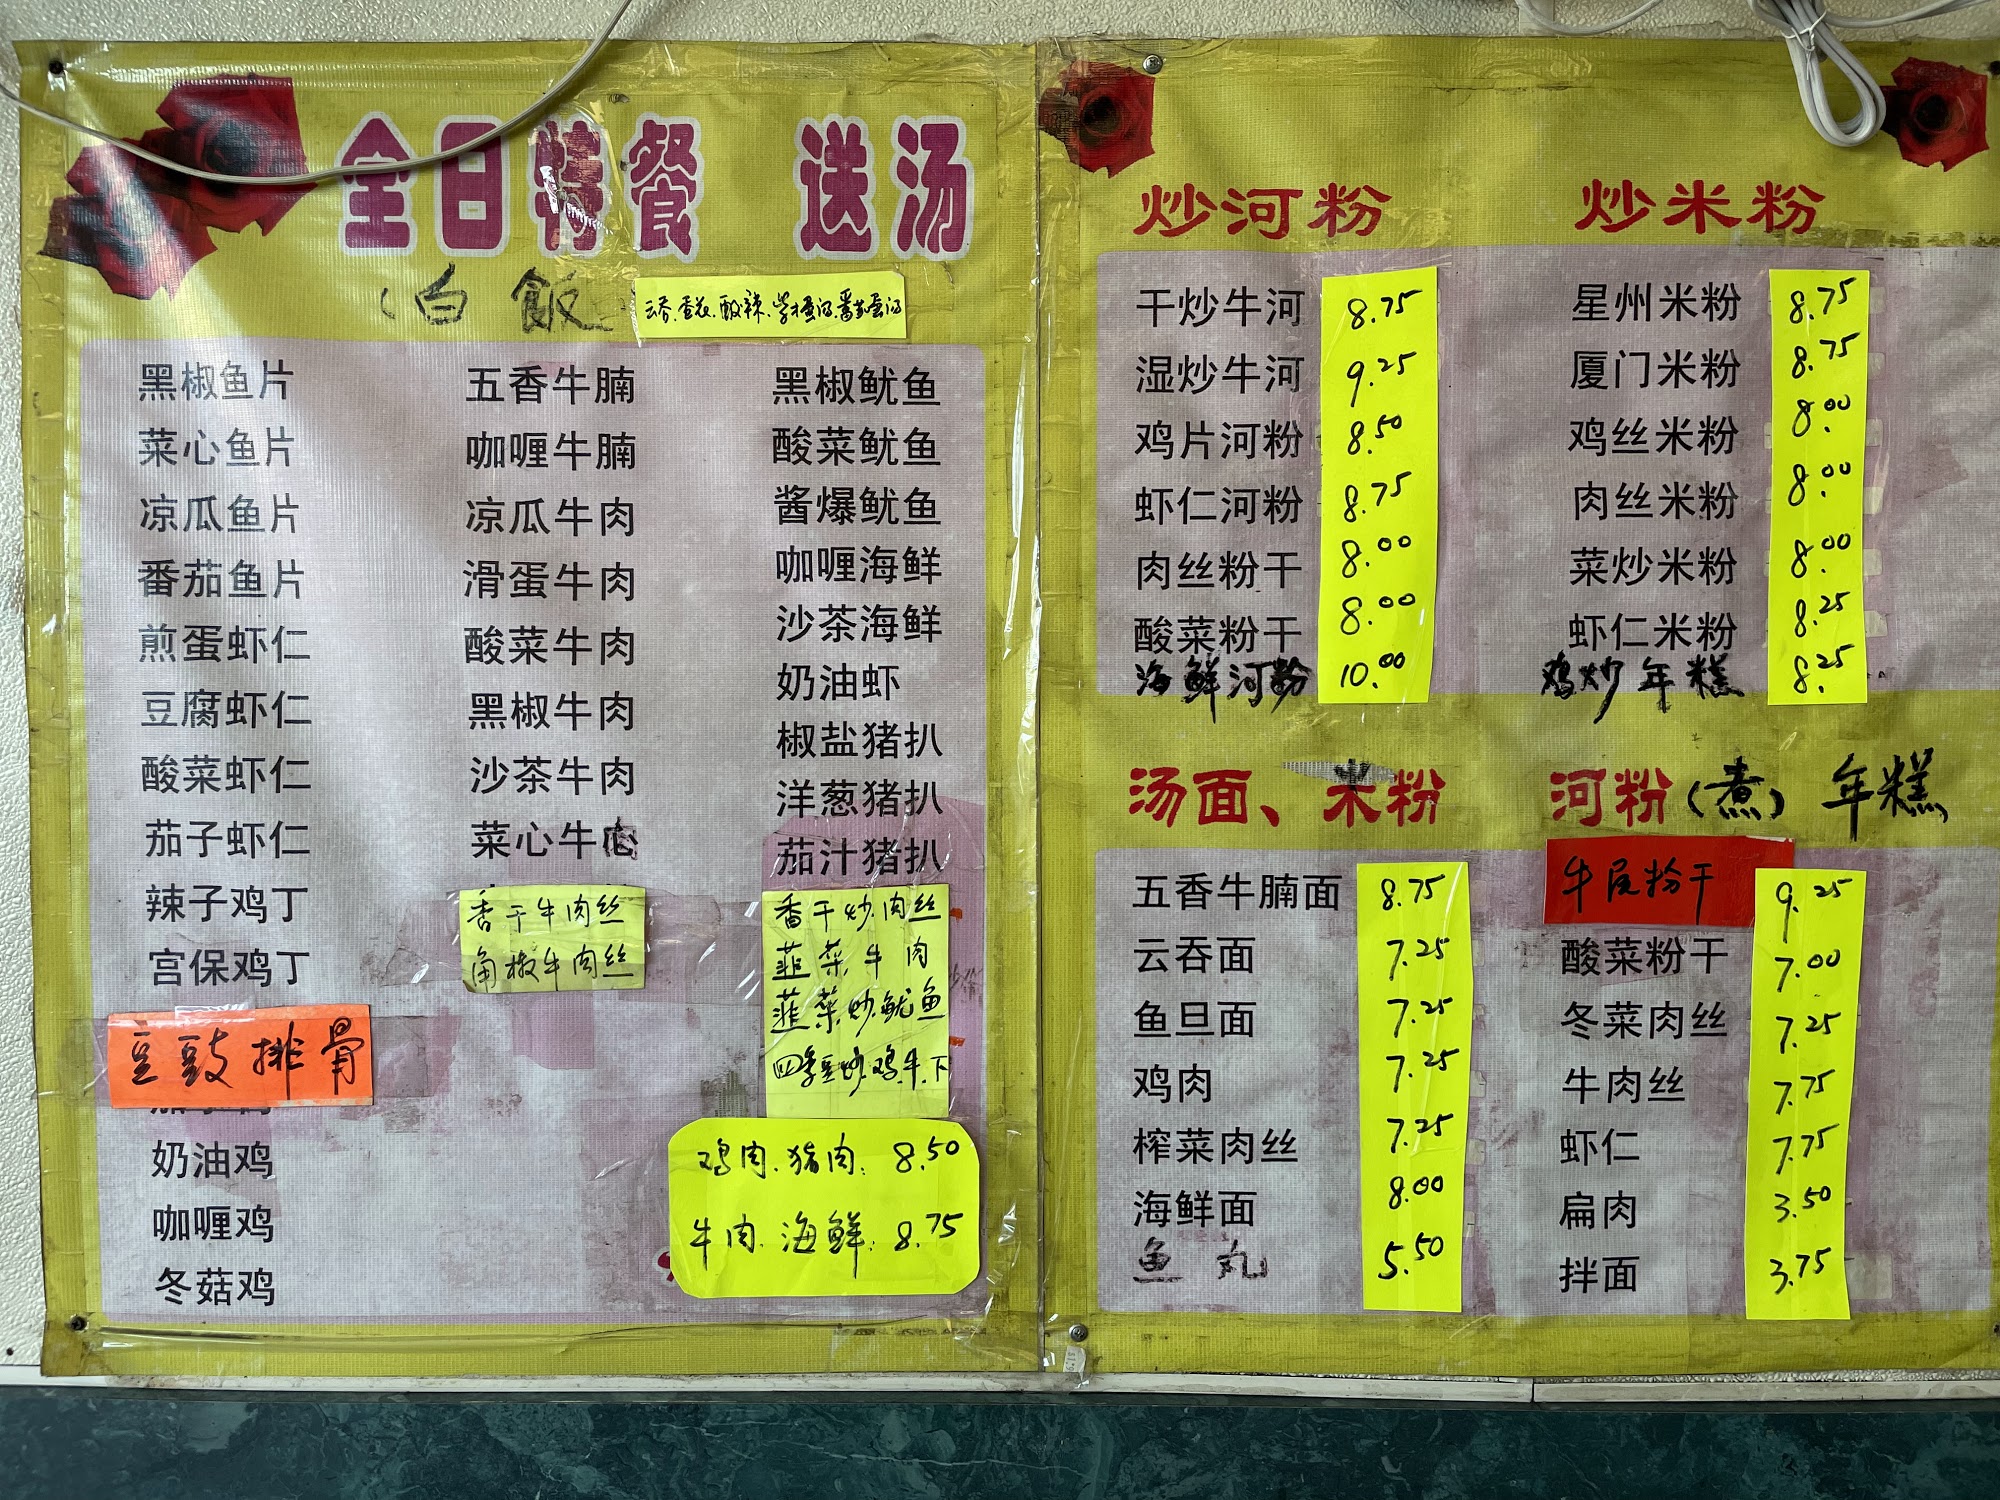 全日特餐 送汤
(白飯
云吞.蛋花.酸辣.紫菜蛋汤.番茄蛋汤
黑椒鱼片
菜心鱼片
凉瓜鱼片
番茄鱼片
煎蛋虾仁
豆腐虾仁
酸菜虾仁
茄子虾仁
辣子鸡丁
宫保鸡丁
豆豉排骨
奶油鸡
咖喱鸡
冬菇鸡
五香牛腩
咖喱牛腩
凉瓜牛肉
滑蛋牛肉
酸菜牛肉
黑椒牛肉
沙茶牛肉
菜心牛肉
香干牛肉丝
角椒牛肉丝
黑椒鱿鱼
酸菜鱿鱼
酱爆鱿鱼
咖喱海鲜
沙茶海鲜
奶油虾
椒盐猪扒
洋葱猪扒
茄汁猪扒
香干炒肉丝
韮菜牛肉
韮菜炒鱿鱼
四季豆炒鸡.牛.下
鸡肉.猪肉: 8.50
牛肉.海鲜: 8.75
炒河粉
干炒牛河 8.75
湿炒牛河 9.25
鸡片河粉 8.50
虾仁河粉 8.75
肉丝粉干 8.00
酸菜粉干 8.00
海鲜河粉 10.00
炒米粉
星州米粉 8.75
厦门米粉 8.75
鸡丝米粉 8.00
肉丝米粉 8.00
菜炒米粉 8.00
虾仁米粉 8.25
鸡炒年糕 8.25
汤面、米粉 河粉(煮)年糕
五香牛腩面 8.75
云吞面 7.25
鱼旦面 7.25
鸡肉 7.25
榨菜肉丝 7.25
海鲜面 8.00
鱼丸 5.50
牛尾粉干 9.25
酸菜粉干 7.00
冬菜肉丝 7.25
牛肉丝 7.75
虾仁 7.75
扁肉 3.50
拌面 3.75